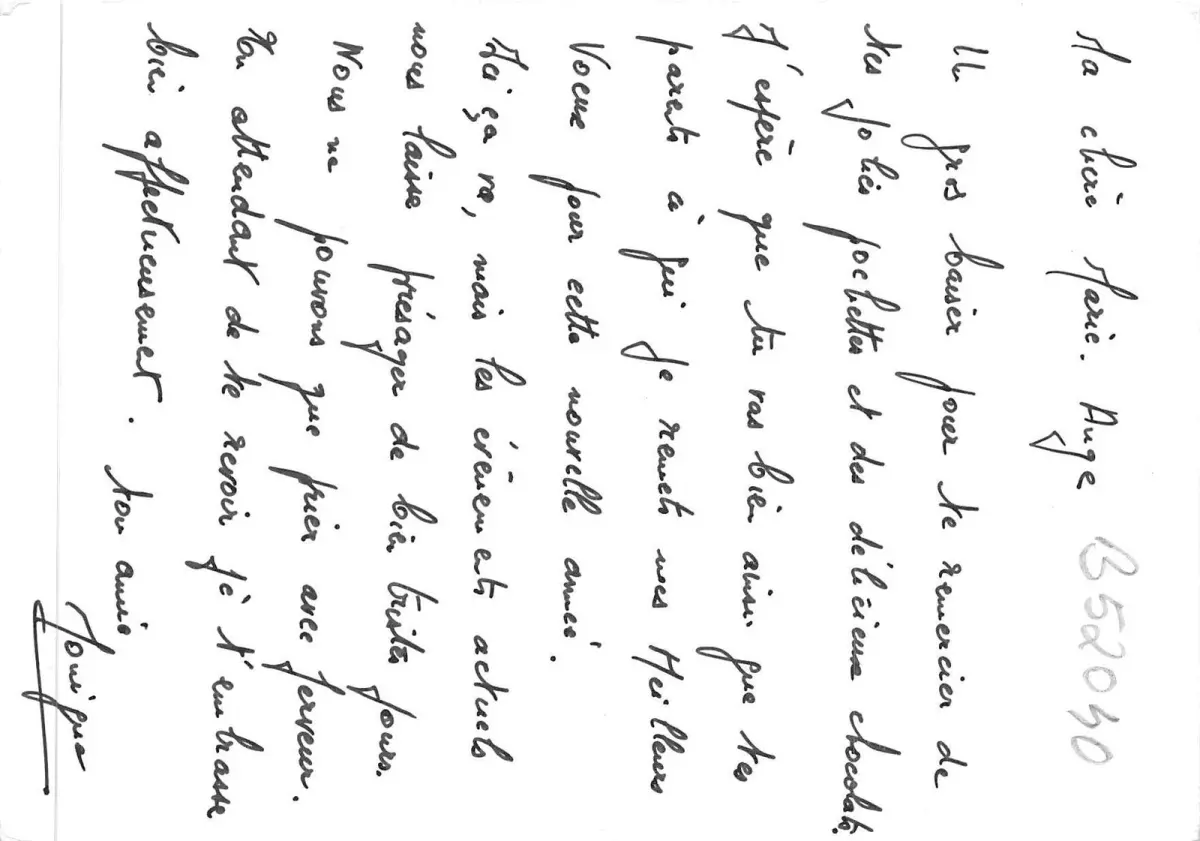 Ma chère Marie. Ange
B52040
Un gros baiser pour te remercier de
tes jolies pochettes et des délicieux chocolats.
J'espère que tu vas bien ainsi que tes
parents à qui je remets mes Meilleurs
Voeux pour cette nouvelle année.
Ici ça va, mais les évènements actuels
nous laisse présager de bien tristes jours.
Nous ne pouvons que prier avec ferveur.
En attendant de te revoir je t'embrasse
bien affectueusement. ton amie